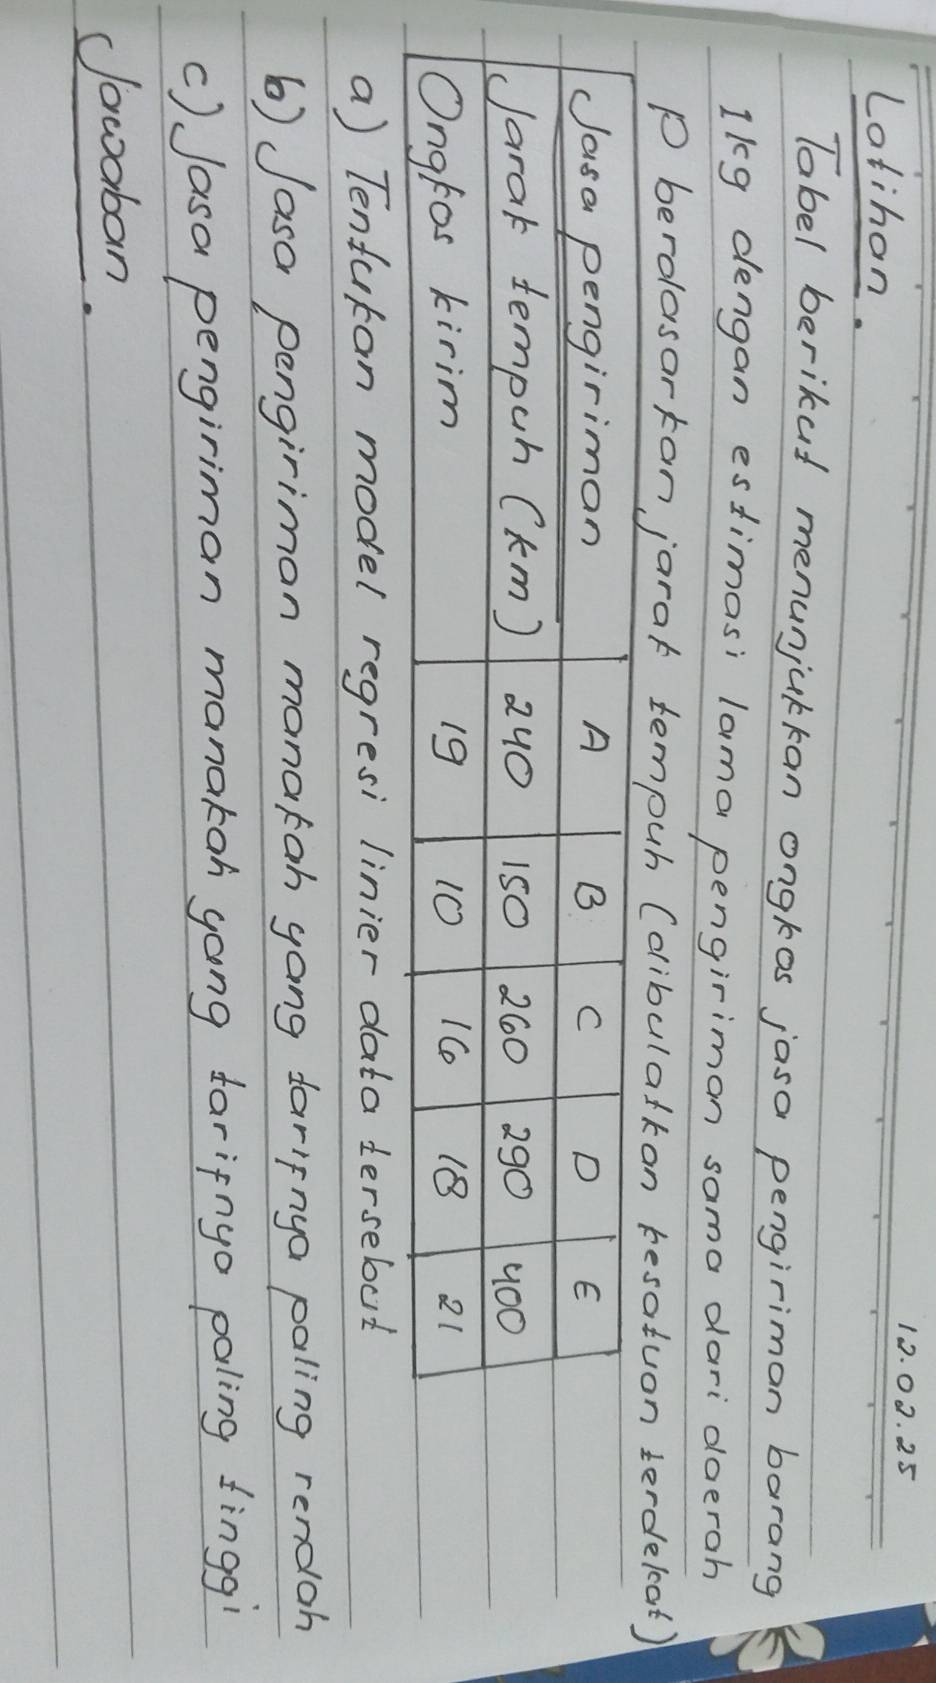 12.02.25
Latihan.
Tabel berikut menunjukkan ongkos jasa pengiriman barang
1kg dengan estimasi lama pengiriman sama dari daerah
P berdasarkan jarak tempuh (dibulatkan kesatuan terdekat)
Jasa pengiriman A B C D E
Jarak tempuh (km) 240 150 260 290 400
Ongkos kirim 19 10 16 18 21
a) Tentukan model regresi linier data tersebut
b) Jasa pengiriman manakah yang tarifnya paling rendah
c) Jasa pengiriman manakah yang tarifnya paling tinggi
Jawaban.